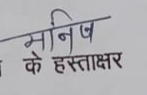 मनिष
के हस्ताक्षर